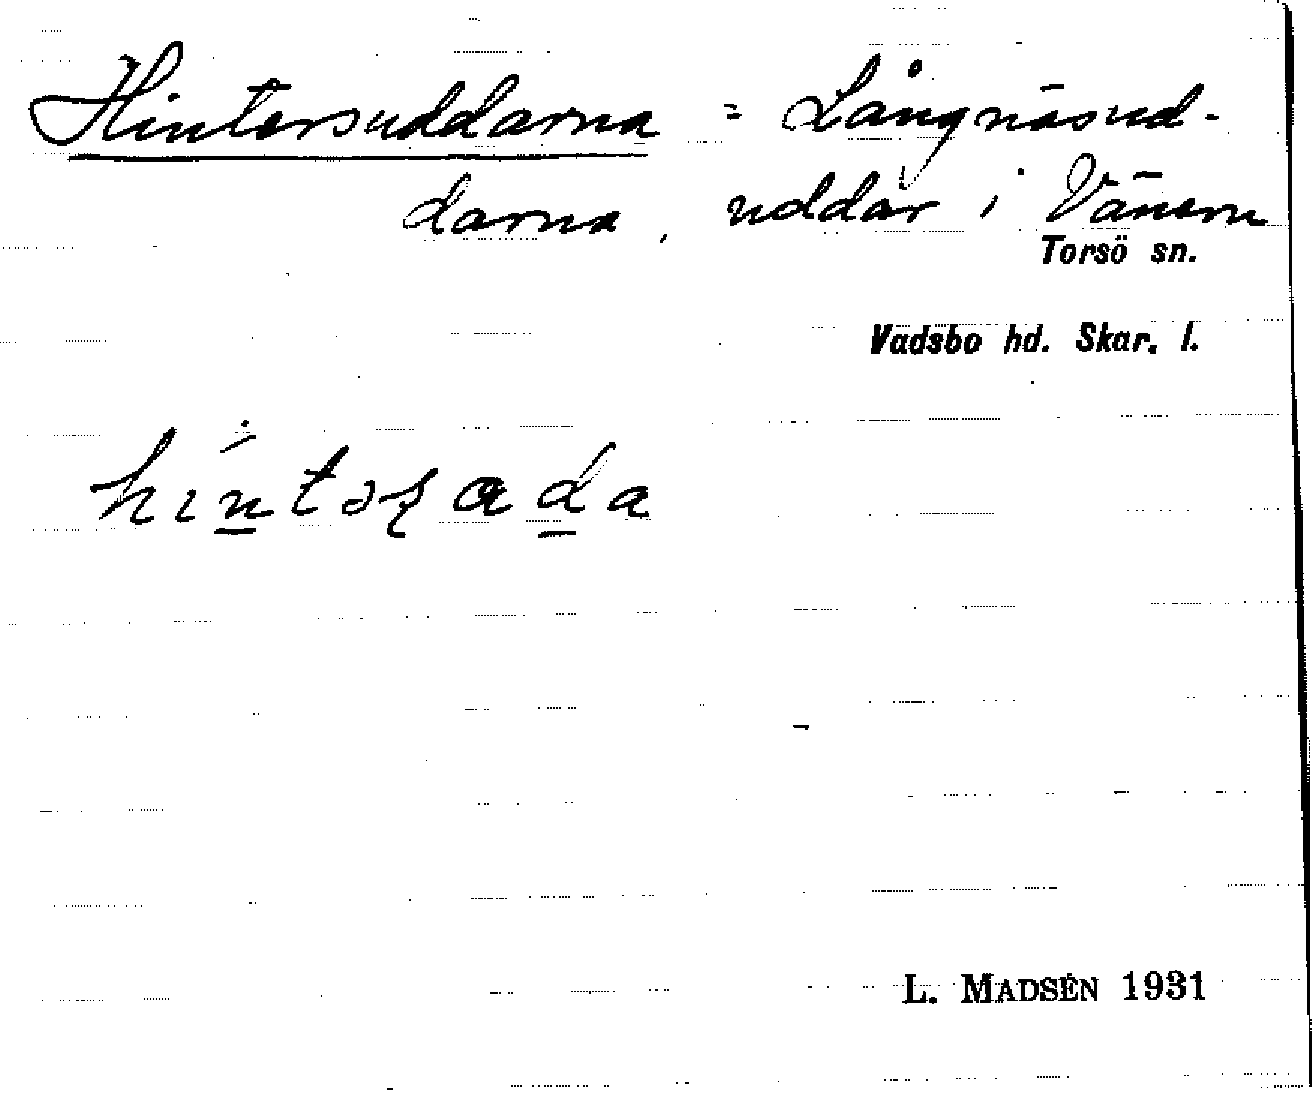 Hintersuddarna = Långnäsud-
darna, uddar i Vänern
Torsö sn.
Vadsbo hd. Skar. l.
L. MADSÉN 1931